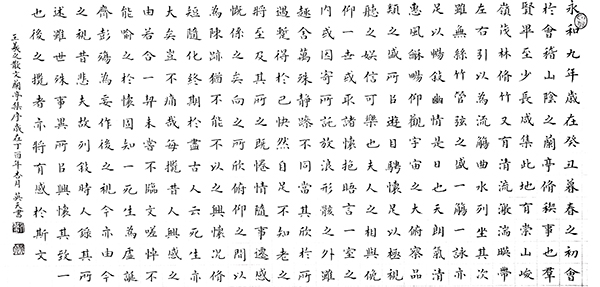 永和九年歲在癸丑暮春之初會
於會稽山陰之蘭亭脩稧事也羣
賢畢至少長咸集此地有崇山峻
嶺茂林脩竹又有清流激湍暎帶
左右引以為流觴曲水列坐其次
雖無絲竹管弦之盛一觴一詠亦
足以暢敘幽情是日也天朗氣清
惠風龢暢仰觀宇宙之大俯察品
類之盛所㠯遊目騁懷足以極視
聽之娛信可樂也夫人之相與俯
仰一世或取諸懷抱晤言一室之
內或因寄所託放浪形骸之外雖
趣舍萬殊靜躁不同當其欣於所
遇暫得於己快然自足不知老之
將至及其所之既惓情隨事遷感
慨係之矣向之所欣俛仰之間以
為陳跡猶不能不以之興懷況脩
短隨化終期於盡古人云死生亦
大矣豈不痛哉每攬昔人興感之
由若合一契未嘗不臨文嗟悼不
能喻之於懷固知一死生為虛誕
齊彭殤為妄作後之視今亦由今
之視昔悲夫故列敘時人錄其所
述雖世殊事異所㠯興懷其致一
也後之攬者亦將有感於斯文
王羲之散文蘭亭集序歲在丁酉年杏月